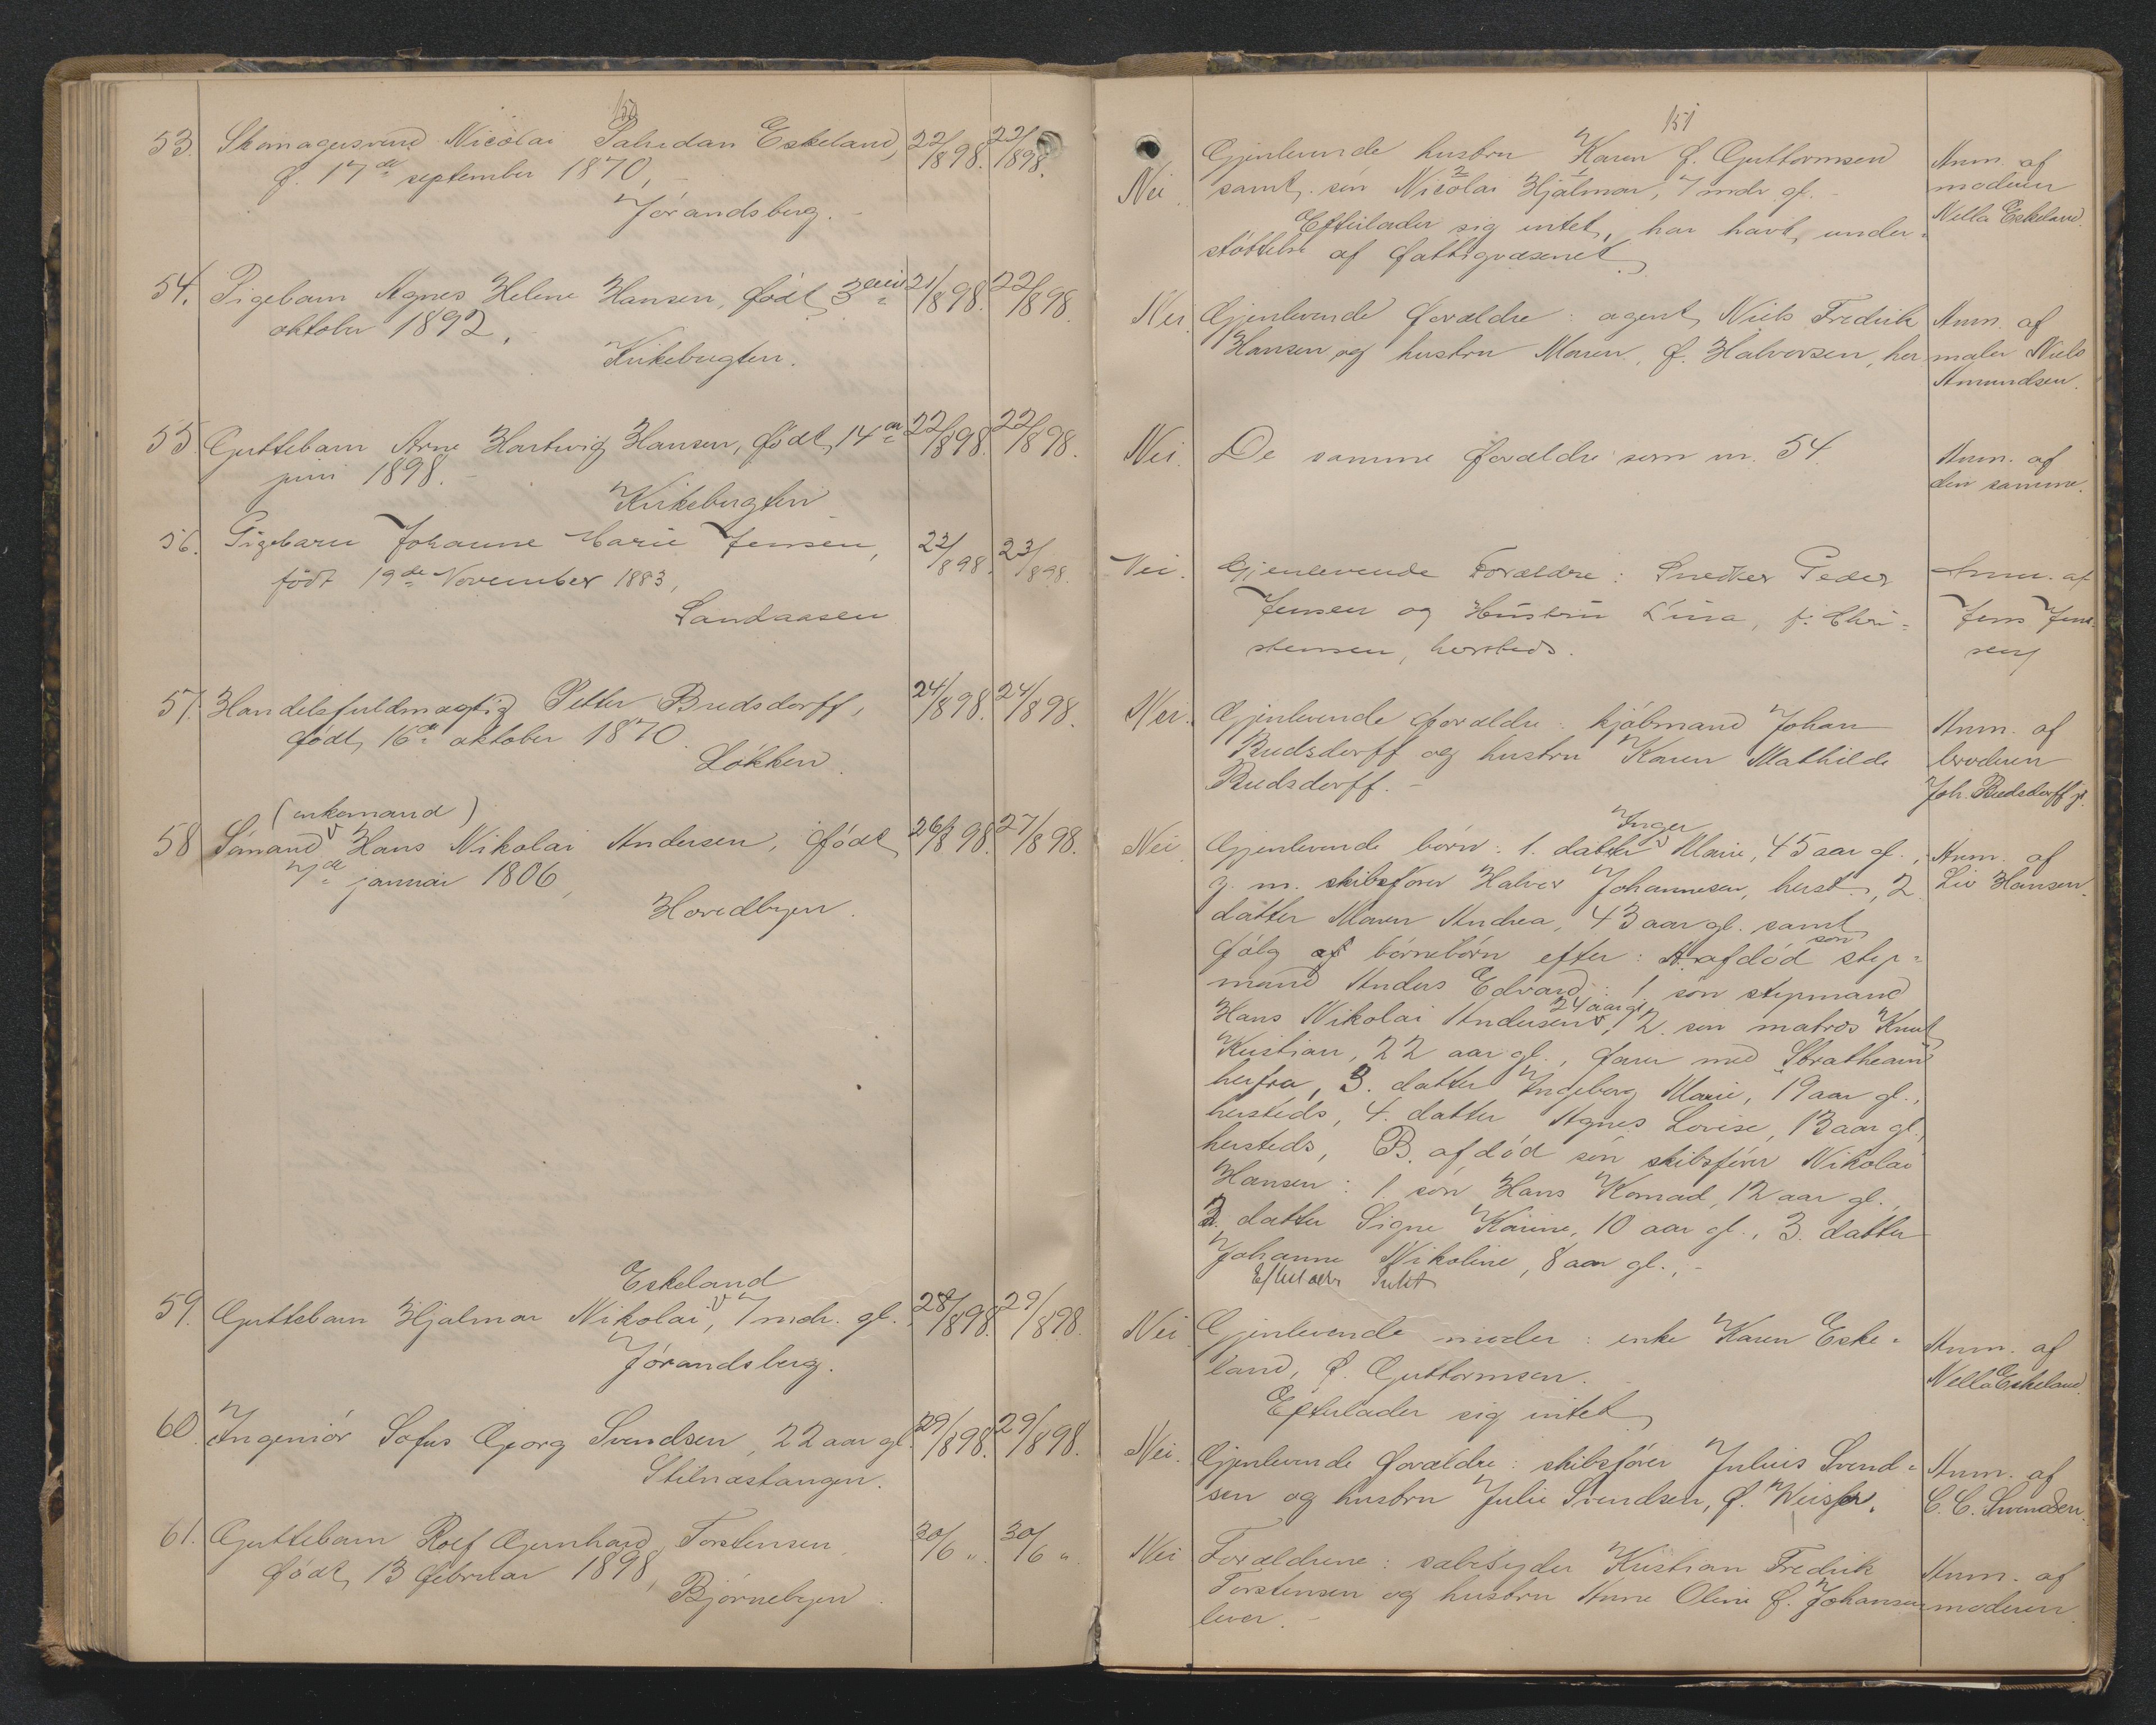 150
53. Skomagersvend Nicolai Salvedan Eskeland, 22/6 898. 22/6 898.
f. 17de september 1870,
Jórandsberg.
54. Pigebarn Agnes Helene Hansen, født 3die 21/6 898. 22/6 898.
oktober 1892,
Kirkebugten.
55. Guttebarn Arne Hartvig Hansen, født 14de 22/6 898. 22/6 898.
juni 1898.
Kirkebugten
56. Pigebarn Johanne Marie Jensen, 23/6 898. 23/6 898.
født 19de November 1883,
Sandaasen
57. Handelsfuldmægtig Petter Bredsdorff, 24/6 898. 24/6 898.
født 16de oktober 1870.
Løkken.
(enkemand)
58 Sømand Hans Nikolai Andersen, født 26/6 898. 27/6 898.
7de januar 1806,
Hovedbyen.
Eskeland
59. Guttebarn Hjalmar Nikolai, 7 mdr. gl. 28/6 898. 29/6 898.
Jórandsberg.
60. Ingeniør Sofus Georg Svendsen, 22 aar gl. 29/6 898. 29/6 898.
Stilnæstangen.
61. Guttebarn Rolf Gernhard Torstensen, 30/6 ". 30/6 ".
født 13 februar 1898,
Bjørnebyen.
151
Gjenlevende hustru Karen f. Guttormsen
Nei. samt søn Nicolai Hjalmar, 7 mdr. gl.
Efterlader sig intet, har havt under-
støttelse af fattigvæsenet.
Anm. af
moderen
Nella Eskeland.
Nei. Gjenlevende forældre: agent Niels Fredrik
Hansen og hustru Maren, f. Halvorsen, her
Anm. af
maler Niels
Amundsen.
Nei. De samme forældre som nr. 54.
Anm. af
den samme.
Nei. Gjenlevende Forældre: Snedker Peder
Jensen og Hustru Lina, f: Chri-
stensen, hersteds.
Anm. af
Jens Jen-
sen
Nei. Gjenlevende forældre: kjøbmand Johan
Bredsdorff og hustru Karen Mathilde
Bredsdorff. -
Anm. af
broderen
Joh. Bredsdorff jr.
Inger
Nei. Gjenlevende børn: 1. datter Marie, 45 aar gl.,
g. m. skibsfører Halvor Johannesen, herst., 2
datter Maren Andrea, 43 aar gl. samt
følg af børnebørn efter: A. afdød søn styr-
mand Anders Edvard: 1 søn styrmand
Hans Nikolai Andersen, 24 aar gl., 2. søn matros Knut
Kristian, 22 aar gl., farer med "Strathearn"
herfra, 3. datter Ingeborg Marie, 19 aar gl.,
hersteds, 4. datter Agnes Lovise, 13 aar gl.,
hersteds, B. afdød søn skibsfører Nikolai
Hansen: 1. søn Hans Konrad, 12 aar gl.,
2. datter Signe Karine, 10 aar gl., 3. datter
Johanne Nikoline, 8 aar gl., -
Efterlader Intet
Anm. af
Liv Hansen.
Nei. Gjenlevende moder: enke Karen Eske-
land, f. Guttormsen.
Efterlader sig intet
Anm. af
Nella Eskeland.
Nei. Gjenlevende forældre: skibsfører Julius Svend-
sen og hustru Julie Svendsen, f.
Anm. af
C. C. Svendsen.
Nei Forældrene: Kristian Fredrik
Torstensen og hustru Anne Oline f. Johansen
lever. -
Anm. af
moderen.